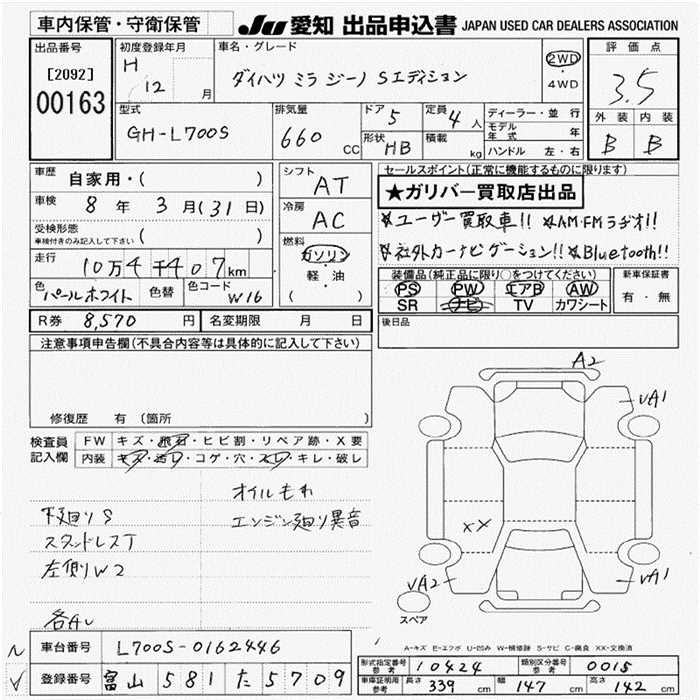 車内保管・守衛保管
JU 愛知 出品申込書 JAPAN USED CAR DEALERS ASSOCIATION
出品番号
[2092]
00163
初度登録年月
H 12 月
車名・グレード
ダイハツ ミラ ジーノ Sエディション
2WD
・
4WD
評価点
3.5
外装 内装
B B
型式
GH-L700S
排気量
660 CC
ドア 5
形状 HB
定員 4 人
積載 kg
ディーラー・並行
モデル年式 年
ハンドル 左・右
車歴 自家用・( )
車検 8 年 3 月(31 日)
受検形態
車検付きのみ記入して下さい ( )
走行 10万4千407km
色 パールホワイト 色替 色コード W16
シフト AT
冷房 AC
燃料
ガソリン
軽・油
( )
セールスポイント(正常に機能するものに限ります)
★ガリバー買取店出品
★ユーザー買取車!! ★AM・FMラヂオ!!
★社外カーナビゲーション!! ★Bluetooth!!
装備品(純正品に限り○をつけてください)
PS PW エアB AW
SR ナビ TV カワシート
新車保証書
有・無
R券 8,570 円 名変期限 月 日
後日品
注意事項申告欄(不具合内容等は具体的に記入して下さい)
修復歴 有 (箇所 )
検査員記入欄
FW キズ・飛石・ヒビ割・リペア跡・X要
内装 キズ・汚レ・コゲ・穴・スレ・キレ・破レ
オイルもれ
下廻りS エンジン廻り異音
スタンドレスT
左側りW2
各AU
A2
vA1
XX
vA2
vA1
スペア
A-キズ E-エクボ U-凹み W-補修跡 S-サビ C-腐食 XX-交換済
車台番号 L700S-0162446
登録番号 富山 581 た 5709
型式指定番号 参考 10424 類別区分番号 参考 0015
車庫証明用 参考 長さ 339 cm 幅 147 cm 高さ 142 cm